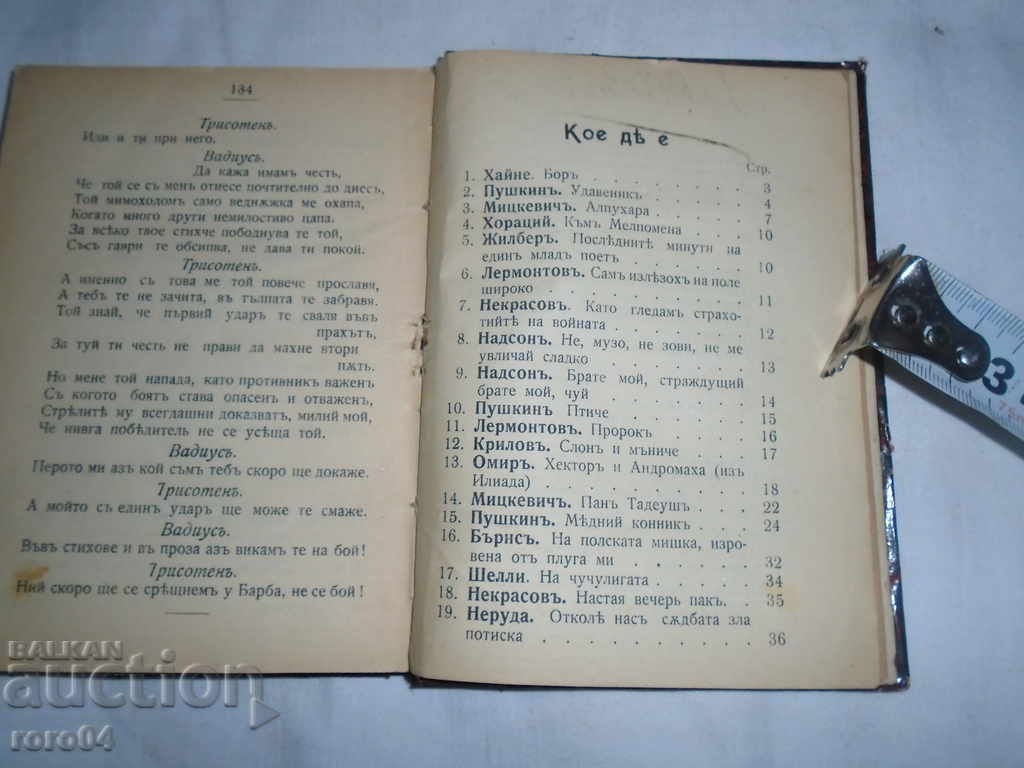 134
Трисотенъ.
Иди и ти при него.
Вадиусъ.
Да кажа имамъ честь,
Че той се съ менъ отнесе почтително до днесъ,
Той мимоходомъ само веднѫжка ме охапа,
Когато много други немилостиво цапа.
За всѣко твое стихче пободнува те той,
Съсъ гаври те обсипва, не дава ти покой.
Трисотенъ.
А именно съ това ме той повече прославя,
А тебъ те не зачита, въ тълпата те забравя.
Той знай, че първий ударъ те сваля въвъ
прахътъ,
За туй ти честь не прави да махне втори
пѫть.
Но мене той напада, като противникъ важенъ
Съ когото боятъ става опасенъ и отваженъ,
Стрѣлитѣ му всегдашни доказватъ, милий мой,
Че нивга побѣдитель не се усѣща той.
Вадиусъ.
Перото ми азъ кой съмъ тебъ скоро ще докаже.
Трисотенъ.
А мойто съ единъ ударъ ще може те смаже.
Вадиусъ.
Въвъ стихове и въ проза азъ викамъ те на бой!
Трисотенъ.
Ний скоро ще се срѣщнемъ у Барба, не се бой!
Кое дѣ е
Стр.
1. Хайне. Боръ . . . . . . . . 3
2. Пушкинъ. Удавеникъ . . . . . . 4
3. Мицкевичъ. Алпухара . . . . . 7
4. Хораций. Къмъ Мелпомена . . . 10
5. Жилберъ. Послѣднитѣ минути на
единъ младъ поетъ . . . . . . 10
6. Лермонтовъ. Самъ излѣзохъ на поле
широко . . . . . . . . 11
7. Некрасовъ. Като гледамъ страхо-
тийтѣ на войната . . . . . . 12
8. Надсонъ. Не, музо, не зови, не ме
увличай сладко . . . . . . 13
9. Надсонъ. Брате мой, страждущий
брате мой, чуй . . . . . . 14
10. Пушкинъ Птиче . . . . . . 15
11. Лермонтовъ. Пророкъ . . . . . 16
12. Криловъ. Слонъ и мъниче . . . . 17
13. Омиръ. Хекторъ и Андромаха (изъ
Илиада) . . . . . . . . 18
14. Мицкевичъ. Панъ Тадеушъ . . . 22
15. Пушкинъ. Мѣдний конникъ . . . 24
16. Бърнсъ. На полската мишка, изро-
вена отъ плуга ми . . . . . 32
17. Шелли. На чучулигата . . . . . 34
18. Некрасовъ. Настая вечерь пакъ. . . 35
19. Неруда. Отколѣ насъ сѫдбата зла
потиска . . . . . . . . 36
3
BALKAN
auction
roro04